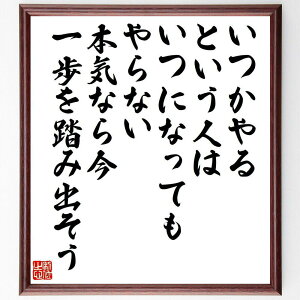 いつかやる
という人は
いつになっても
やらない
本気なら今
一歩を踏み出そう